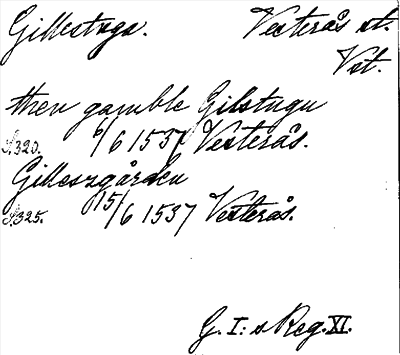 Gillestuga. Vesterås st.
Vst.
then gamble Gilstugu
S.320. 6/6 1537 Vesterås.
Gilleszgården
S.325. 15/6 1537 Vesterås.
G. I:s Reg. XI.